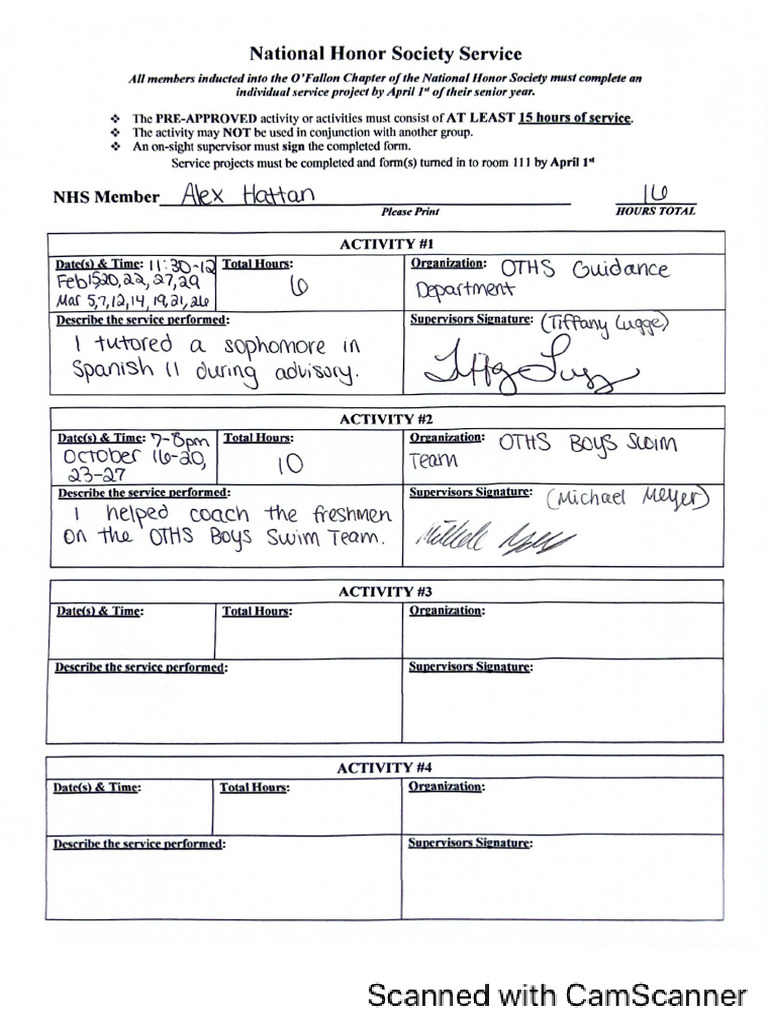 National Honor Society Service
All members inducted into the O'Fallon Chapter of the National Honor Society must complete an
individual service project by April 1st of their senior year.
❖ The PRE-APPROVED activity or activities must consist of AT LEAST 15 hours of service.
❖ The activity may NOT be used in conjunction with another group.
❖ An on-sight supervisor must sign the completed form.
Service projects must be completed and form(s) turned in to room 111 by April 1st
NHS Member Alex Hattan 16
Please Print HOURS TOTAL
ACTIVITY #1
Date(s) & Time: 11:30-12
Feb 15, 20, 22, 27, 29
Mar 5, 7, 12, 14, 19, 21, 26
Total Hours:
6
Organization: OTHS Guidance
Department
Describe the service performed:
I tutored a sophomore in
Spanish II during advisory.
Supervisors Signature: (Tiffany Lugge)
ACTIVITY #2
Date(s) & Time: 7-8pm
October 16-20,
23-27
Total Hours:
10
Organization: OTHS Boys Swim
Team
Describe the service performed:
I helped coach the freshmen
on the OTHS Boys Swim Team.
Supervisors Signature: (Michael Meyer)
ACTIVITY #3
Date(s) & Time:
Total Hours:
Organization:
Describe the service performed:
Supervisors Signature:
ACTIVITY #4
Date(s) & Time:
Total Hours:
Organization:
Describe the service performed:
Supervisors Signature:
Scanned with CamScanner